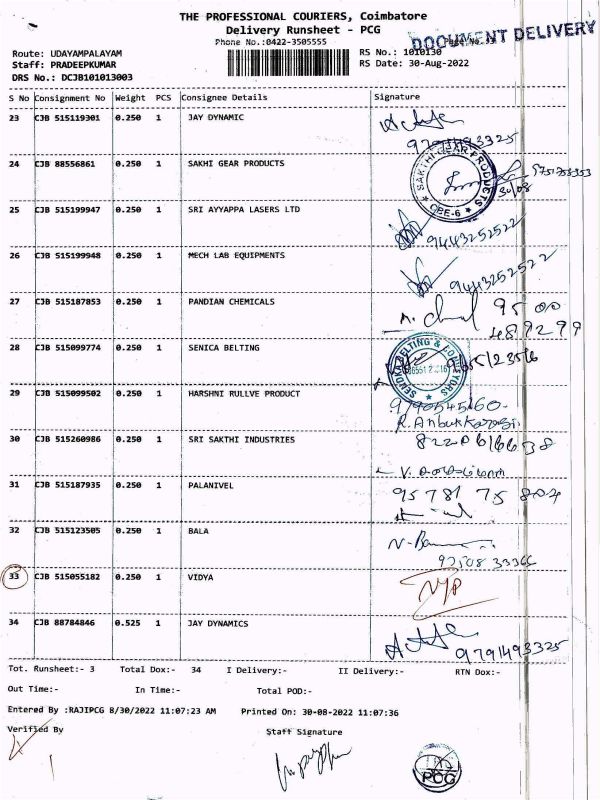 THE PROFESSIONAL COURIERS, Coimbatore
Delivery Runsheet - PCG
Phone No.:0422-3505555
DOCUMENT DELIVERY
Route: UDAYAMPALAYAM
RS No.: 1010130
Staff: PRADEEPKUMAR
RS Date: 30-Aug-2022
DRS No.: DCJB101013003
S No Consignment No Weight PCS Consignee Details Signature
23 CJB 515119301 0.250 1 JAY DYNAMIC
9791493325
24 CJB 88556861 0.250 1 SAKHI GEAR PRODUCTS
SAKTHI GEAR PRODUCTS
CBE-6
30/08
25 CJB 515199947 0.250 1 SRI AYYAPPA LASERS LTD
9443252522
26 CJB 515199948 0.250 1 MECH LAB EQUIPMENTS
9443252522
27 CJB 515187853 0.250 1 PANDIAN CHEMICALS
9500
489299
28 CJB 515099774 0.250 1 SENICA BELTING
BELTING &
29 CJB 515099502 0.250 1 HARSHNI RULLVE PRODUCT
30 CJB 515260986 0.250 1 SRI SAKTHI INDUSTRIES
31 CJB 515187935 0.250 1 PALANIVEL
95781 75 804
32 CJB 515123505 0.250 1 BALA
33 CJB 515055182 0.250 1 VIDYA
34 CJB 88784846 0.525 1 JAY DYNAMICS
9791493325
Tot. Runsheet:- 3 Total Dox:- 34 I Delivery:- II Delivery:- RTN Dox:-
Out Time:- In Time:- Total POD:-
Entered By :RAJIPCG 8/30/2022 11:07:23 AM Printed On: 30-08-2022 11:07:36
Verified By Staff Signature
PCG